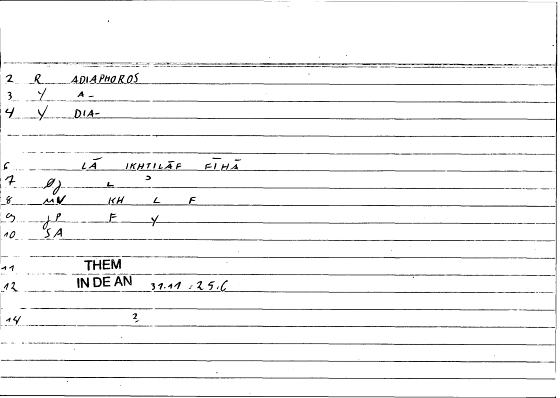 2 R ADIAPHOROS
3 Y A-
4 Y DIA-
6 LĀ IKHTILĀF FĪHĀ
7 L ɔ
8 MV KH L F
9 JP F Y
10 SA
11 THEM
12 IN DE AN 31.11 : 25.6
14 2